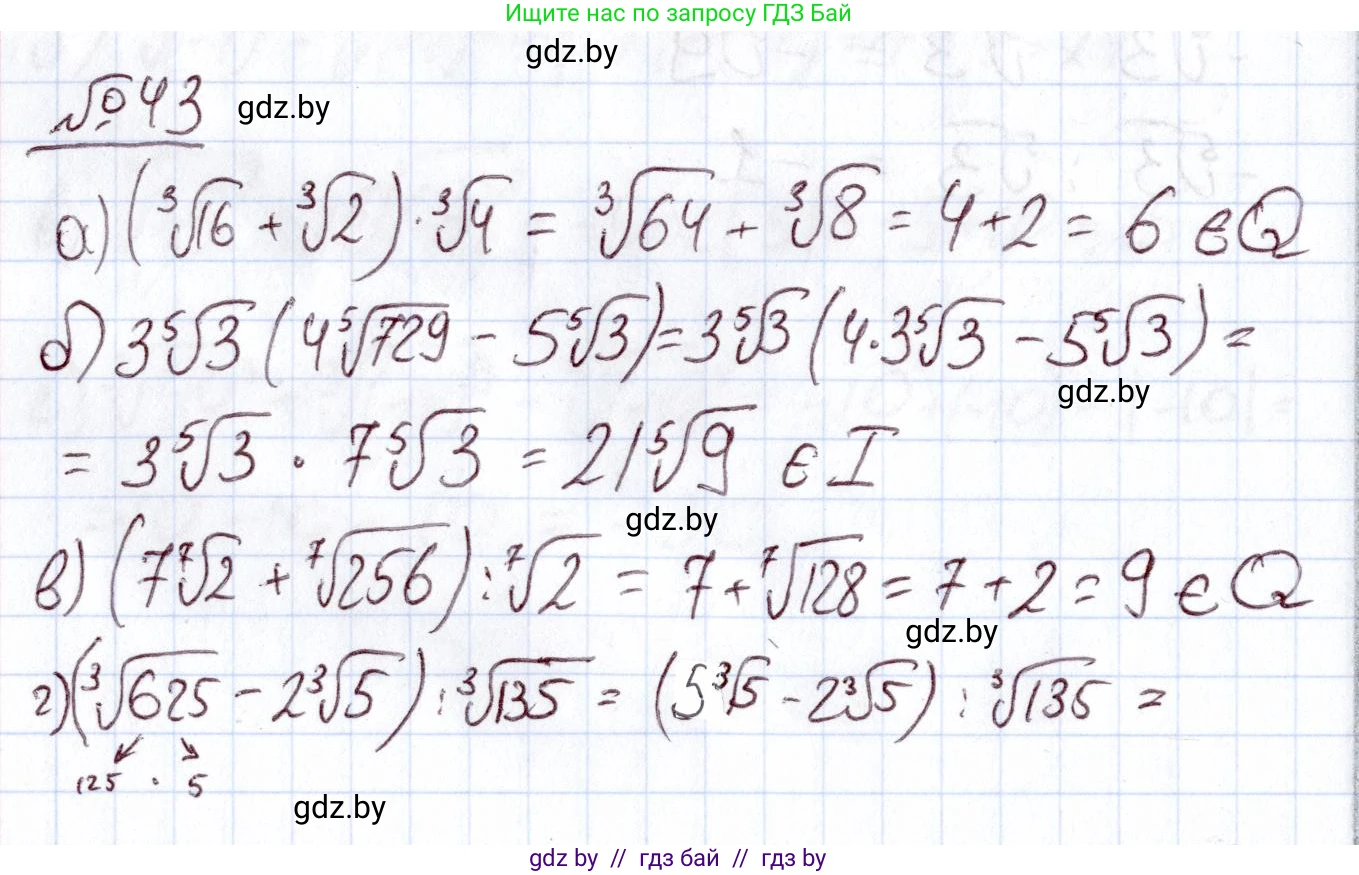 Ищите нас по запросу ГДЗ Бай
gdz.by
№43 gdz.by
а) (∛16 + ∛2) · ∛4 = ∛64 + ∛8 = 4 + 2 = 6 ∈ Q
б) 3⁵√3 (4⁵√729 - 5⁵√3) = 3⁵√3 (4·3⁵√3 - 5⁵√3) =
gdz.by
= 3⁵√3 · 7⁵√3 = 21⁵√9 ∈ I
gdz.by
в) (7⁷√2 + ⁷√256) : ⁷√2 = 7 + ⁷√128 = 7 + 2 = 9 ∈ Q
gdz.by
г) (∛625 - 2∛5) : ∛135 = (5∛5 - 2∛5) : ∛135 =
↙ ↘
125 · 5
gdz.by
gdz by // гдз бай // гдз by